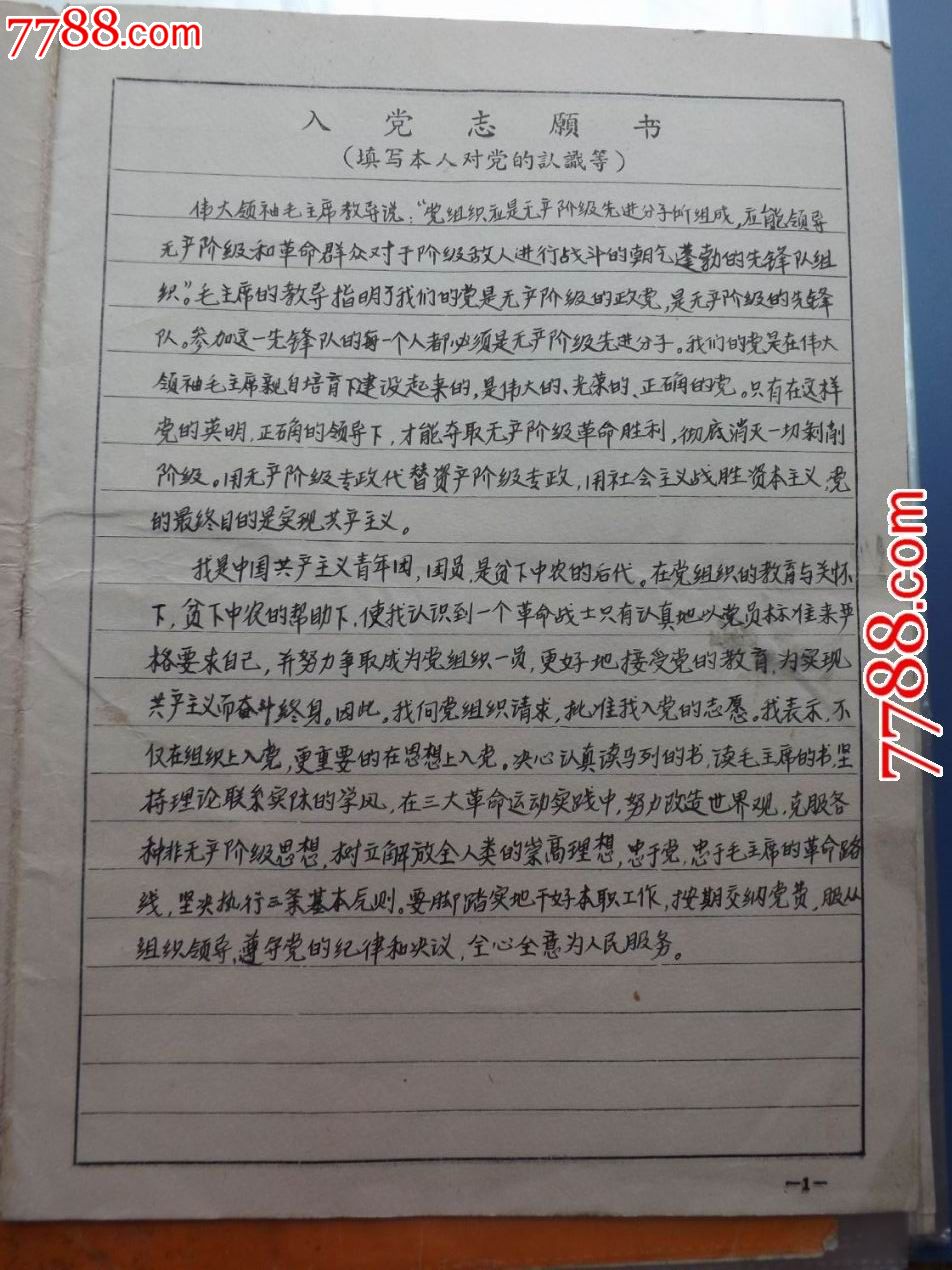 7788.com
入党志願书
（填写本人对党的认識等）
伟大领袖毛主席教导说：“党组织应是无产阶级先进分子所组成，应能领导
无产阶级和革命群众对于阶级敌人进行战斗的朝气蓬勃的先锋队组
织”。毛主席的教导指明了我们的党是无产阶级的政党，是无产阶级的先锋
队。参加这一先锋队的每一个人都必须是无产阶级先进分子。我们的党是在伟大
领袖毛主席亲自培育下建设起来的，是伟大的、光荣的、正确的党。只有在这样
党的英明，正确的领导下，才能夺取无产阶级革命胜利，彻底消灭一切剥削
阶级。用无产阶级专政代替资产阶级专政，用社会主义战胜资本主义，党
的最终目的是实现共产主义。
我是中国共产主义青年团，团员，是贫下中农的后代。在党组织的教育与关怀
下，贫下中农的帮助下，使我认识到一个革命战士只有认真地以党员标准来严
格要求自己，并努力争取成为党组织一员，更好地接受党的教育，为实现
共产主义而奋斗终身。因此。我向党组织请求，批准我入党的志愿。我表示，不
仅在组织上入党，更重要的在思想上入党。决心认真读马列的书，读毛主席的书，坚
持理论联系实际的学风，在三大革命运动实践中，努力改造世界观，克服各
种非无产阶级思想，树立解放全人类的崇高理想，忠于党，忠于毛主席的革命路
线，坚决执行三条基本原则。要脚踏实地干好本职工作，按期交纳党费，服从
组织领导，遵守党的纪律和决议，全心全意为人民服务。
7788.com
—1—